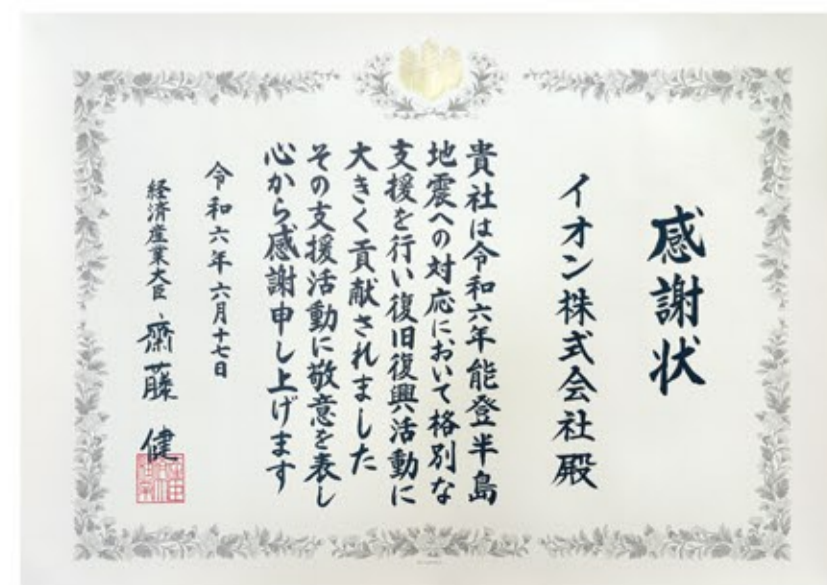 感謝状
イオン株式会社殿
貴社は令和六年能登半島
地震への対応において格別な
支援を行い復旧復興活動に
大きく貢献されました
その支援活動に敬意を表し
心から感謝申し上げます
令和六年六月十七日
経済産業大臣 齋藤 健